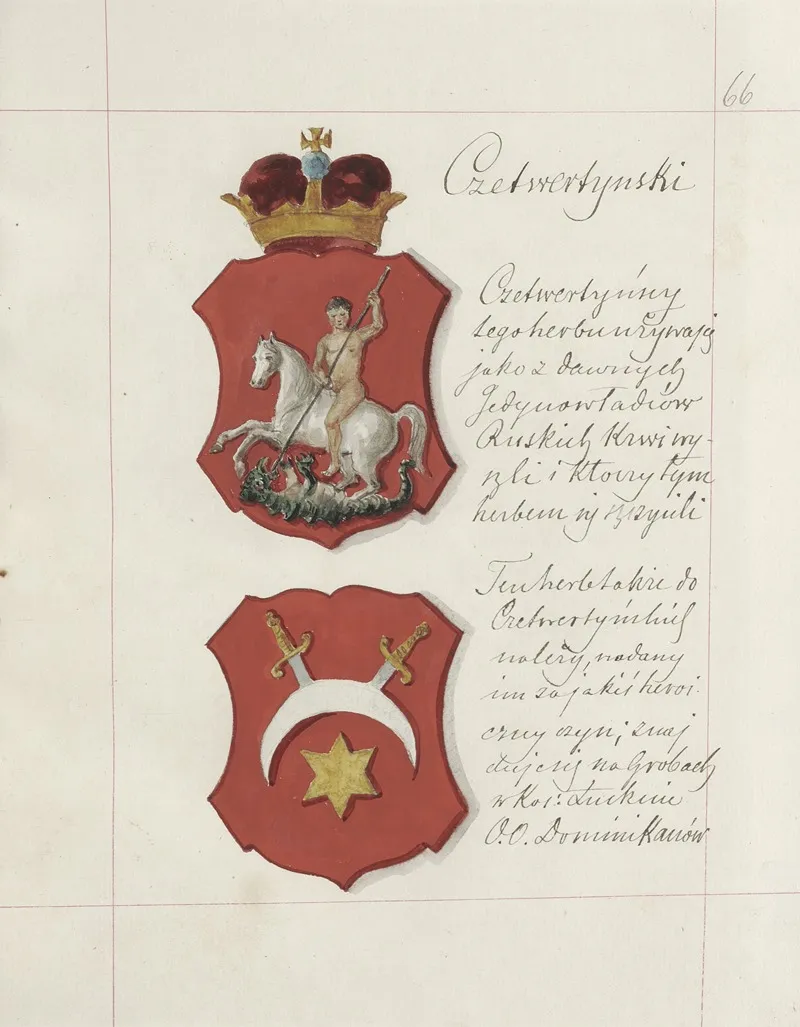 66
Czetwertynski
Czetwertyńscy
tego herbu używają
jako z dawnych
Jedynowładców
Ruskich Krwi wy-
szli i którzy tym
herbem się szczycili
Ten herb także do
Czetwertyńskich
należy, nadany
im za jakiś heroi
czny czyn; znaj
duje się na Grobach
w Koś: Łuckim
O.O. Dominikanów